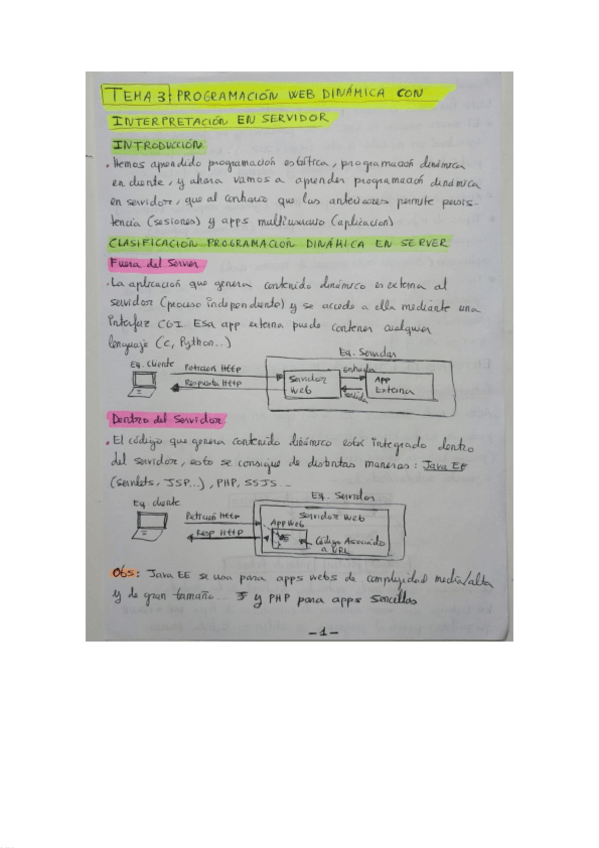 TEMA 3: PROGRAMACIÓN WEB DINÁMICA CON
INTERPRETACIÓN EN SERVIDOR
INTRODUCCIÓN
• Hemos aprendido programación estática, programación dinámica
en cliente, y ahora vamos a aprender programación dinámica
en servidor, que al contrario que las anteriores permite persis-
tencia (sesiones) y apps multiusuario (aplicacion)
CLASIFICACIÓN PROGRAMACIÓN DINÁMICA EN SERVER
Fuera del Server
• La aplicación que genera contenido dinámico es externa al
servidor (proceso independiente) y se accede a ella mediante una
interfaz CGI. Esa app externa puede contener cualquier
lenguaje (C, Python...)
Eq. Servidor
Eq. cliente
Peticion Http
entrada
Servidor
Web
App
Externa
Respuesta Http
salida
Dentro del Servidor
• El código que genera contenido dinámico está integrado dentro
del servidor, esto se consigue de distintas maneras: Java EE
(servlets, JSP...), PHP, SSJS...
Eq. Servidor
Eq. cliente
Servidor Web
Peticion Http
App Web
Resp Http
Código Asociado
a URL
Obs: Java EE se usa para apps webs de complejidad media/alta
y de gran tamaño... y PHP para apps sencillas
-1-